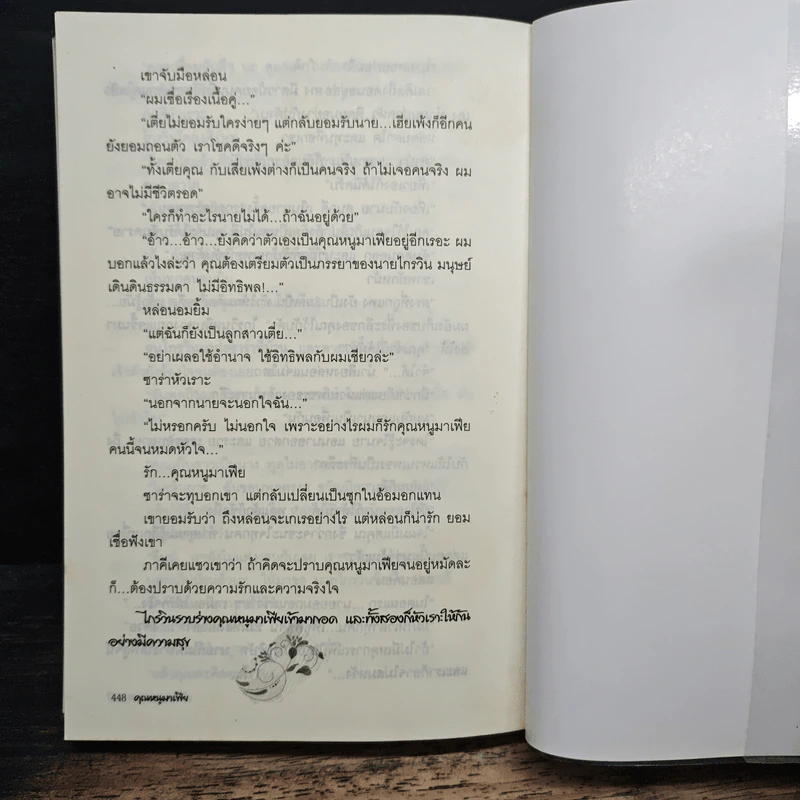 เขาจับมือหล่อน
“ผมเชื่อเรื่องเนื้อคู่...”
“เตี่ยไม่ยอมรับใครง่ายๆ แต่กลับยอมรับนาย...เฮียเพ้งก็อีกคน
ยังยอมถอนตัว เราโชคดีจริงๆ ค่ะ”
“ทั้งเตี่ยคุณ กับเสี่ยเพ้งต่างก็เป็นคนจริง ถ้าไม่เจอคนจริง ผม
อาจไม่มีชีวิตรอด”
“ใครก็ทำอะไรนายไม่ได้...ถ้าฉันอยู่ด้วย”
“อ้าว...อ้าว...ยังคิดว่าตัวเองเป็นคุณหนูมาเฟียอยู่อีกเรอะ ผม
บอกแล้วไงล่ะว่า คุณต้องเตรียมตัวเป็นภรรยาของนายไกรวิน มนุษย์
เดินดินธรรมดา ไม่มีอิทธิพล!...”
หล่อนอมยิ้ม
“แต่ฉันก็ยังเป็นลูกสาวเตี่ย...”
“อย่าเผลอใช้อำนาจ ใช้อิทธิพลกับผมเชียวล่ะ”
ซาร่าหัวเราะ
“นอกจากนายจะนอกใจฉัน...”
“ไม่หรอกครับ ไม่นอกใจ เพราะอย่างไรผมก็รักคุณหนูมาเฟีย
คนนี้จนหมดหัวใจ...”
รัก...คุณหนูมาเฟีย
ซาร่าจะทุบอกเขา แต่กลับเปลี่ยนเป็นซุกในอ้อมอกแทน
เขายอมรับว่า ถึงหล่อนจะเกเรอย่างไร แต่หล่อนก็น่ารัก ยอม
เชื่อฟังเขา
ภาคีเคยแซวเขาว่า ถ้าคิดจะปราบคุณหนูมาเฟียจนอยู่หมัดละ
ก็...ต้องปราบด้วยความรักและความจริงใจ
ไกรวินรวบร่างคุณหนูมาเฟียเข้ามากอด และทั้งสองก็หัวเราะให้กัน
อย่างมีความสุข
448 คุณหนูมาเฟีย